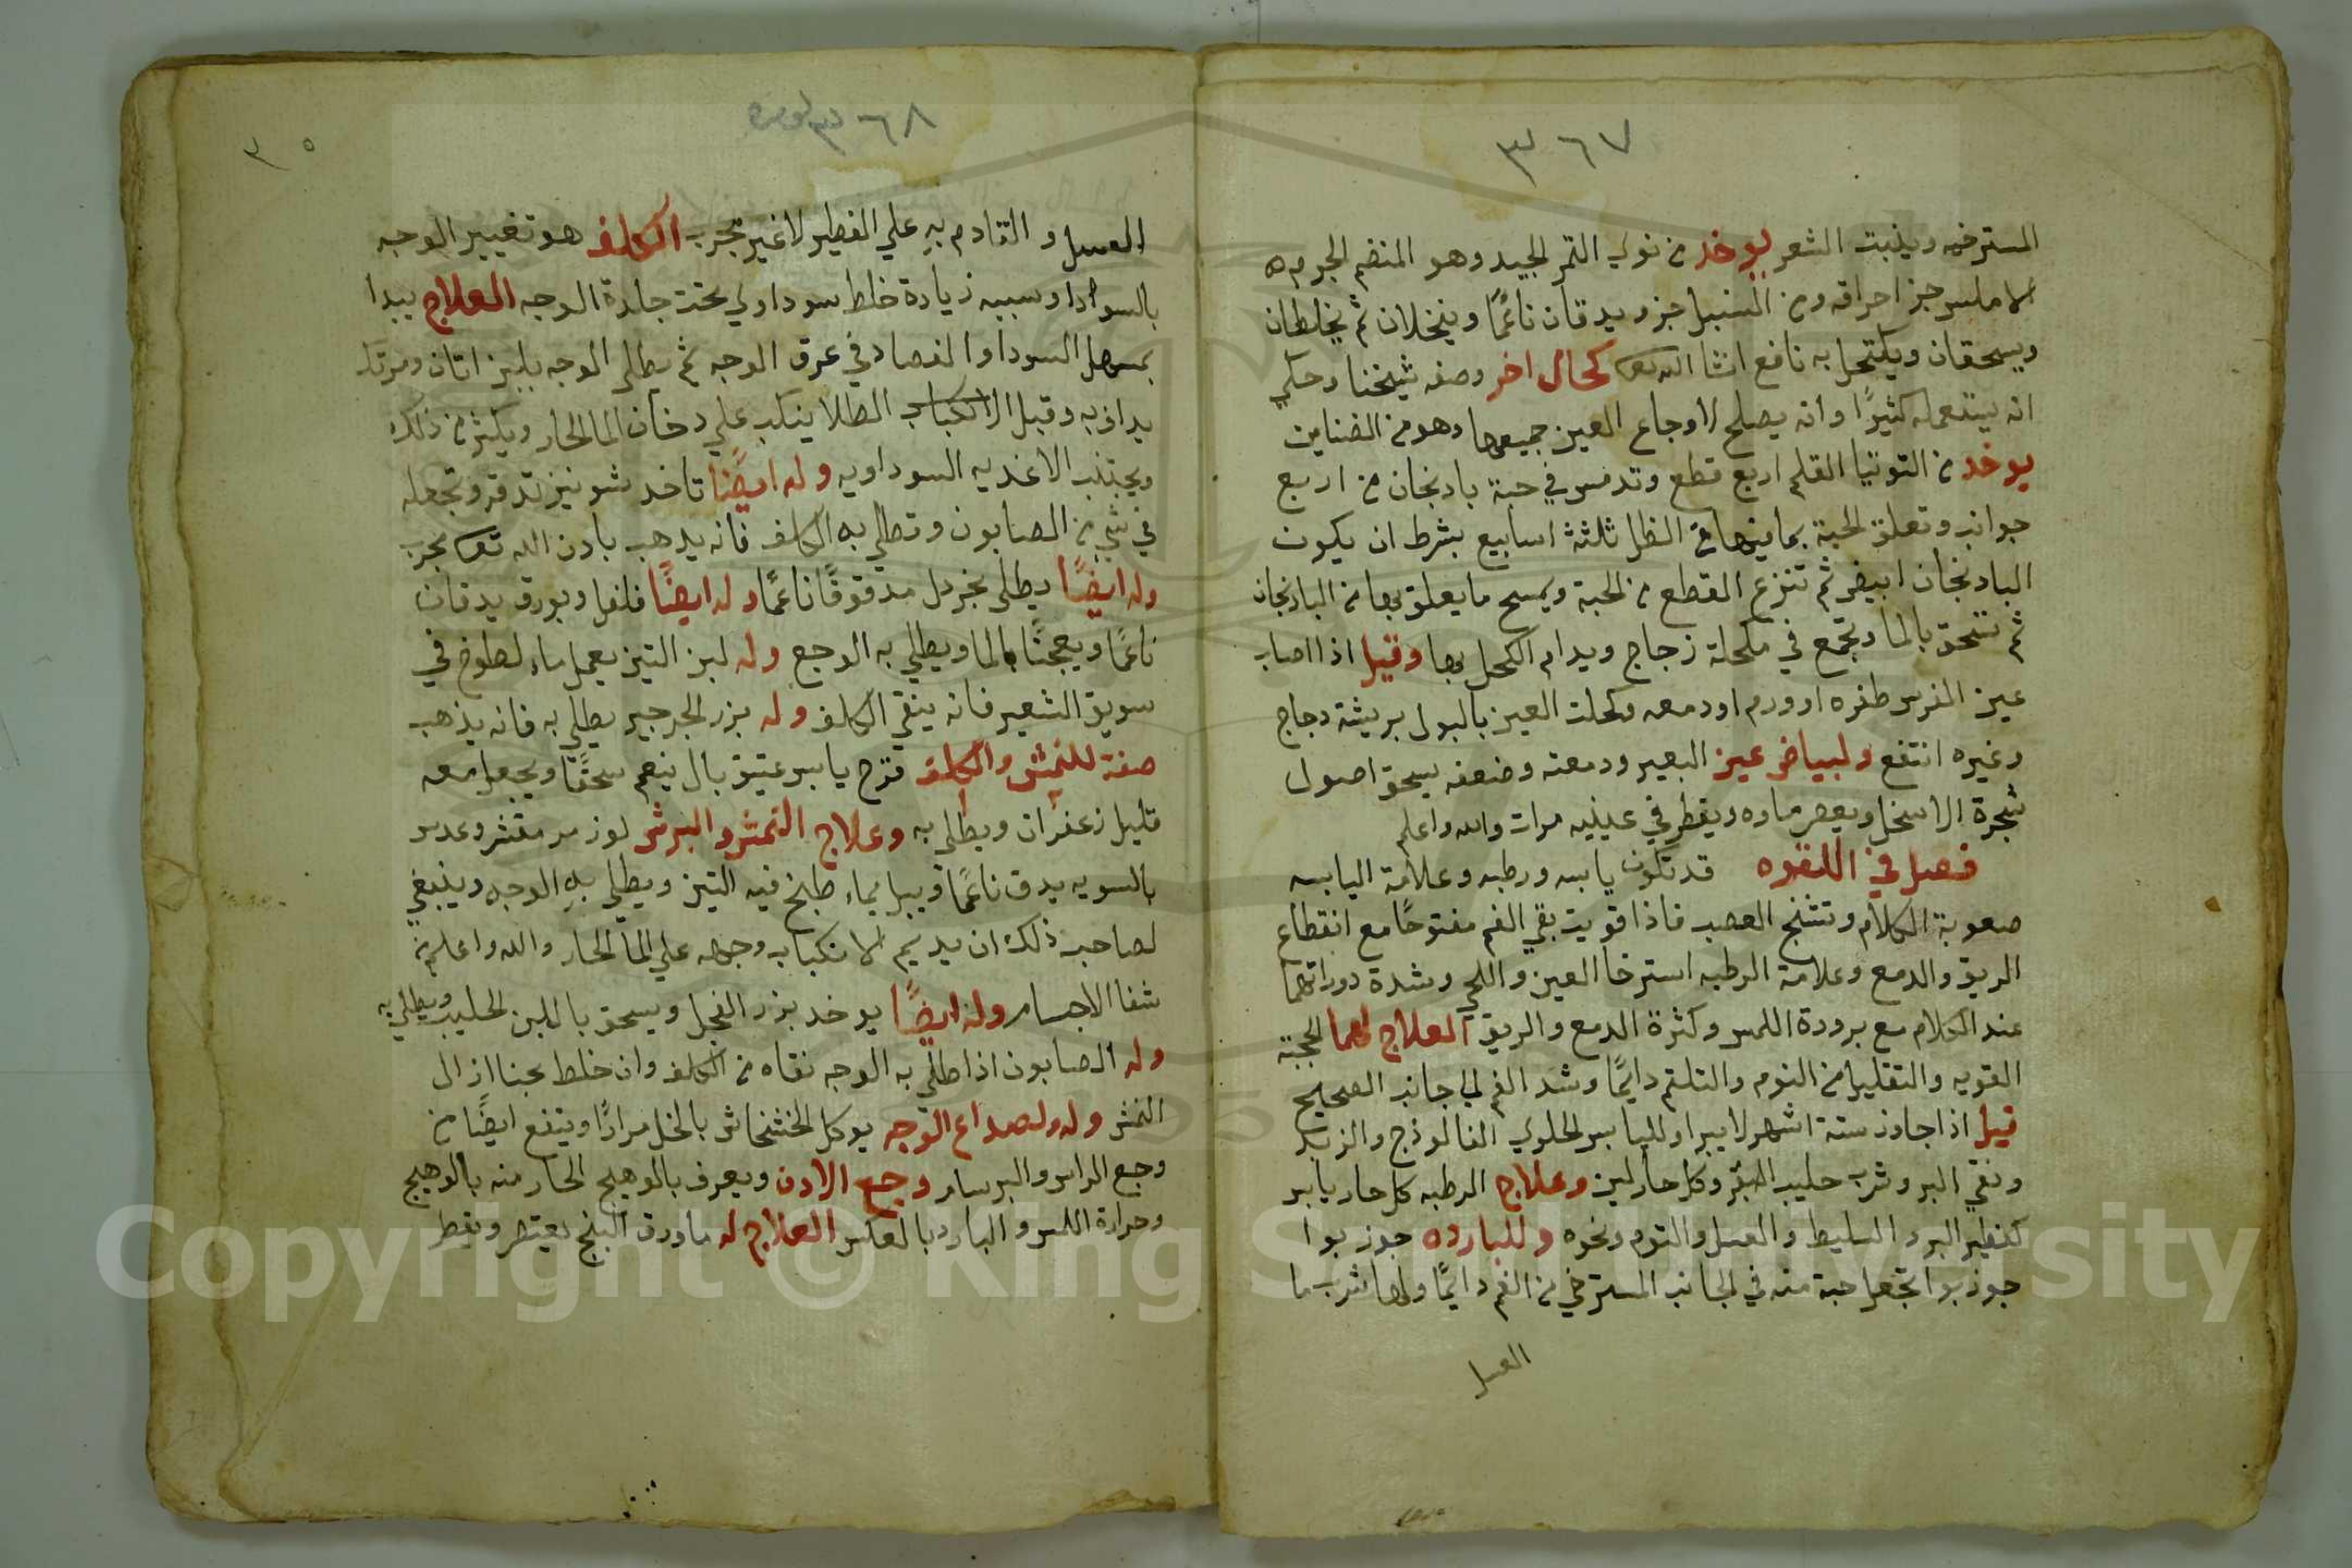 ٣٦٧
المسترخيه وينبت الشعر يوخد من نوي التمر الجيد وهو المنضم الجرم
الاملس جز احراقه ومن السنبل جز ويدقان ناعمًا وينخلان ثم يخلطان
ويسحقان ويكتحل به نافع انشا الله تعا كحال اخر وصفه شيخنا وحكي
انه يستعمله كثيرًا وانه يصلح لاوجاع العين جميعها وهو من الضناين
يوخد من التوتيا القلم اربع قطع وتدمس في حبة بادنجان من اربع
جوانب وتعلق الحبة بما فيها في الظل ثلثة اسابيع بشرط ان يكون
البادنجان ابيض ثم تنزع القطع من الحبة ويمسح ما يعلق بها من البادنجان
ثم تسحق بالما وتجمع في مكحلة زجاج ويدام الكحل بها وقيل اذا اصاب
عين الفرس ظفره او ورم او دمعه وكحلت العين بالبول بريشة دجاج
وغيره انتفع ولبياض عين البعير ودمعته وضعفه يسحق اصول
شجرة الاسخل ويعصر ماوه ويقطر في عينيه مرات والله واعلم
فصل في اللقوه قد تكون يابسه ورطبه وعلامة اليابسه
صعوبة الكلام وتشنج العصب فاذا قويت بقي الفم مفتوحًا مع انقطاع
الريق والدمع وعلامة الرطبه استرخا العين واللحي وشدة دورانهما
عند الكلام مع برودة اللمس وكثرة الدمع والريق العلاج لهما الحجبة
القويه والتقليل من النوم والتلثم دايمًا وشد الفم الي جانب الصحيح
قيل اذا جاوز ستة اشهر لا يبرا ولليابس الحلوي الفالوذج والزبد
ونقي البر وشرب حليب البقر وكل حار لين وعلاج الرطبه كل حار يابس
كفطير البر والسليط والعسل والثوم ونحوه وللبارده جوز بوا
جوز بوا تجعل حبة منه في الجانب المسترخي من الفم دايمًا ولها شرب ما
العسل
٣٦٨
٣٥
العسل والتقادم به علي الفطير لا غير مجرب الكلف هو تغيير الوجه
بالسوادا وسببه زيادة خلط سوداوي تحت جلدة الوجه العلاج يبدا
بمسهل السودا والفصاد في عرق الوجه ثم يطلي الوجه بلبن اتان ومرتك
يداف به وقبل الانكباب الطلا ينكب علي دخان الما الحار ويكثر من ذلك
ويجتنب الاغديه السوداويه وله ايضًا تاخد شونيز تدقه وتجعله
في شي من الصابون وتطلي به الكلف فانه يدهب بادن الله تعا مجرب
وله ايضًا يطلي بخردل مدقوقًا ناعمًا وله ايضًا فلفل وبورق يدقان
ناعمًا ويعجنًا بالما ويطلي به الوجع وله لبن التين يعمل ماء لطوخ في
سويق الشعير فانه ينقي الكلف وله بزر الجرجير يطلي به فانه يذهب
صفة للنمش والكلف قرح يابس عتيق بال ينعم سحقًا ويجعل معه
قليل زعفران ويطلي به وعلاج النمش والبرش لوز مر مقشر وعدس
بالسويه يدق ناعمًا ويبل بماء طبخ فيه التين ويطلي به الوجه وينبغي
لصاحب ذلك ان يديم الانكباب وجهه علي الما الحار والله واعلم من
شفا الاجسام وله ايضًا يوخد بزر الفجل ويسحق باللبن الحليب ويطلي به
وله الصابون اذا طلي به الوجه نقاه من الكلف وان خلط بحنا ازال
النمش وله ولصداع الوجه يوكل الخشخاش بالخل مرارًا وينفع ايضًا من
وجع الراس والبرسام وجع الادن ويعرف بالوهيج الحار منه بالوهيج
وحرارة اللمس والبارد بالعكس العلاج له ما ورق البنج يعتصر ويقطر
Copyright © King Saud University